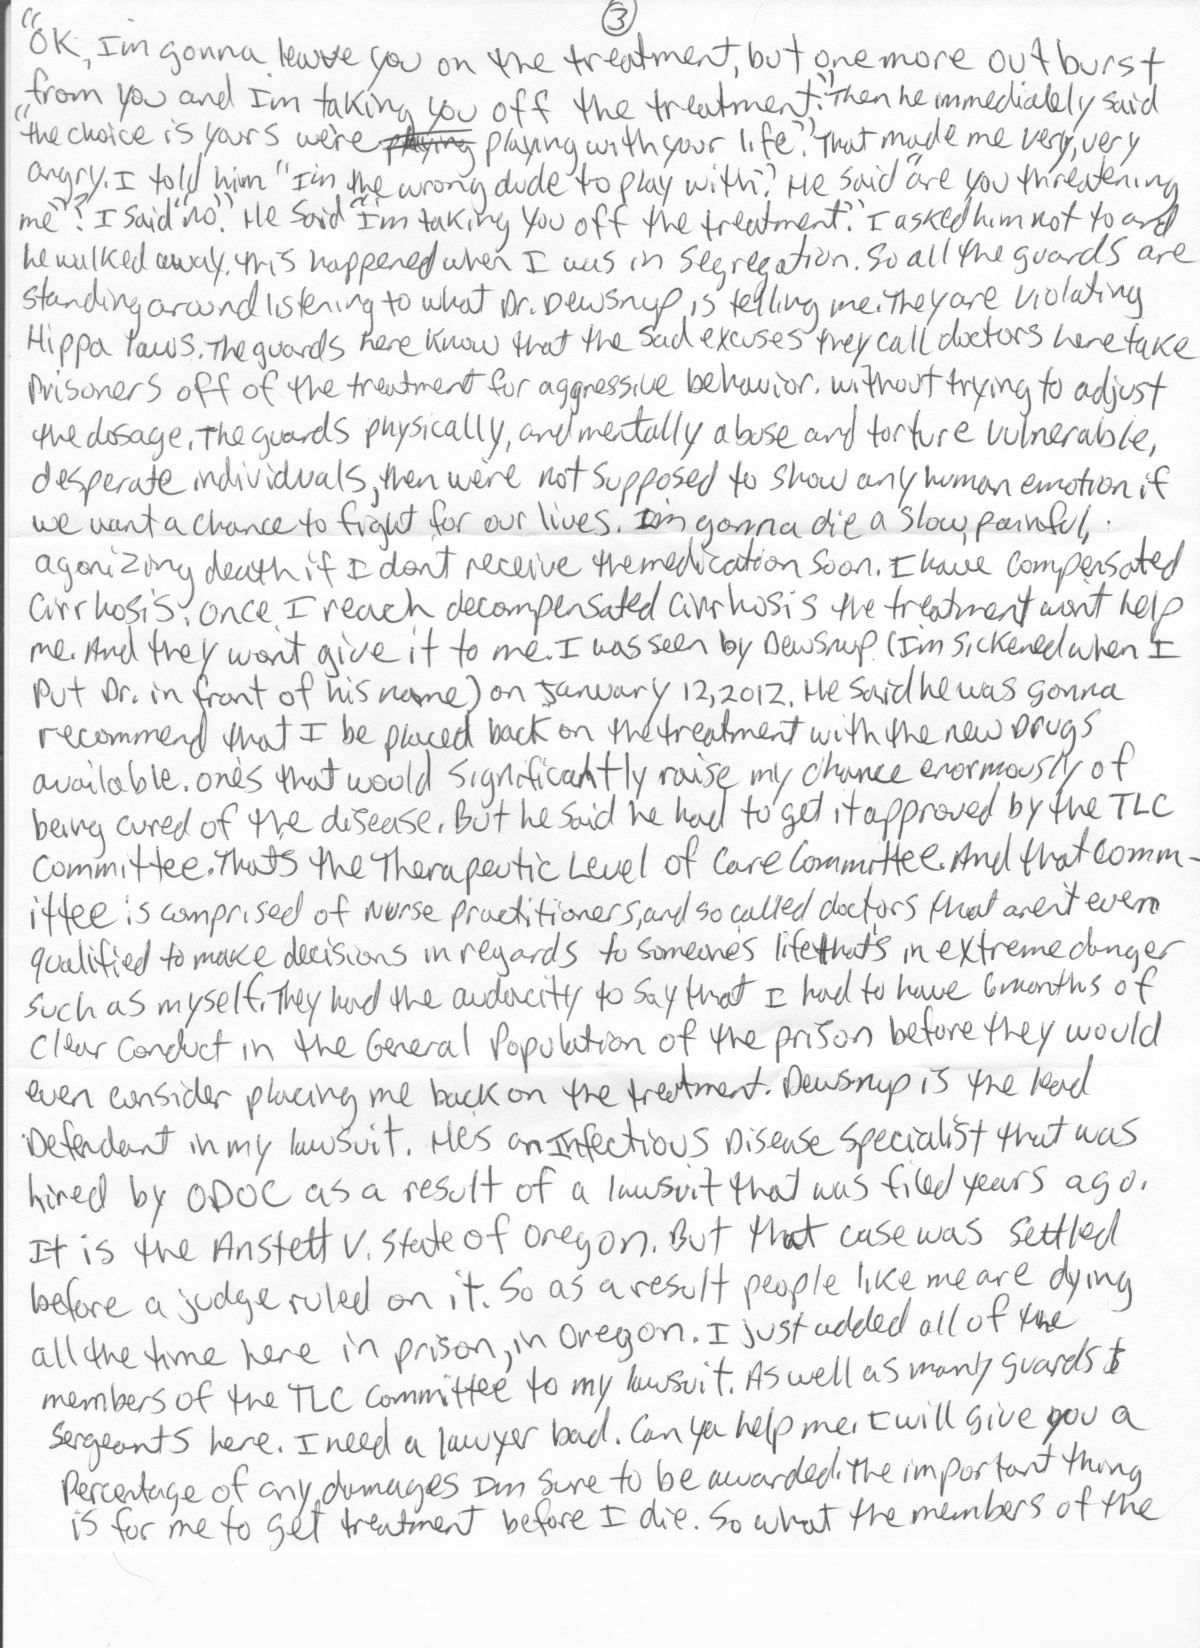 ③
"OK, I'm gonna leave you on the treatment, but one more outburst
from you and I'm taking you off the treatment." Then he immediately said
"the choice is yours we're playing playing with your life." That made me very, very
angry. I told him "I'm the wrong dude to play with." He said "are you threatening
me"? I said "no." He said "I'm taking you off the treatment." I asked him not to and
he walked away. this happened when I was in segregation. So all the guards are
standing around listening to what Dr. Dewsnup is telling me. They are violating
Hippa laws. The guards here know that the sad excuses they call doctors here take
prisoners off of the treatment for aggressive behavior. without trying to adjust
the dosage. The guards physically, and mentally abuse and torture vulnerable,
desperate individuals, then we're not supposed to show any human emotion if
we want a chance to fight for our lives. I'm gonna die a slow, painful,
agonizing death if I don't receive the medication soon. I have compensated
cirrhosis. once I reach decompensated cirrhosis the treatment won't help
me. And they won't give it to me. I was seen by Dewsnup (I'm sickened when I
put Dr. in front of his name) on January 12, 2012. He said he was gonna
recommend that I be placed back on the treatment with the new drugs
available. one's that would significantly raise my chance enormously of
being cured of the disease. But he said he had to get it approved by the TLC
Committee. That's the Therapeutic Level of Care Committee. And that comm-
ittee is comprised of nurse practitioners, and so called doctors that aren't even
qualified to make decisions in regards to someone's life that's in extreme danger
such as myself. They had the audacity to say that I had to have 6 months of
clear conduct in the General Population of the prison before they would
even consider placing me back on the treatment. Dewsnup is the lead
Defendant in my lawsuit. He's an Infectious Disease specialist that was
hired by ODOC as a result of a lawsuit that was filed years ago.
It is the Anstett V. State of Oregon. But that case was settled
before a judge ruled on it. So as a result people like me are dying
all the time here in prison, in Oregon. I just added all of the
members of the TLC Committee to my lawsuit. As well as many guards &
sergeants here. I need a lawyer bad. Can ya help me. I will give you a
percentage of any damages I'm sure to be awarded. The important thing
is for me to get treatment before I die. So what the members of the